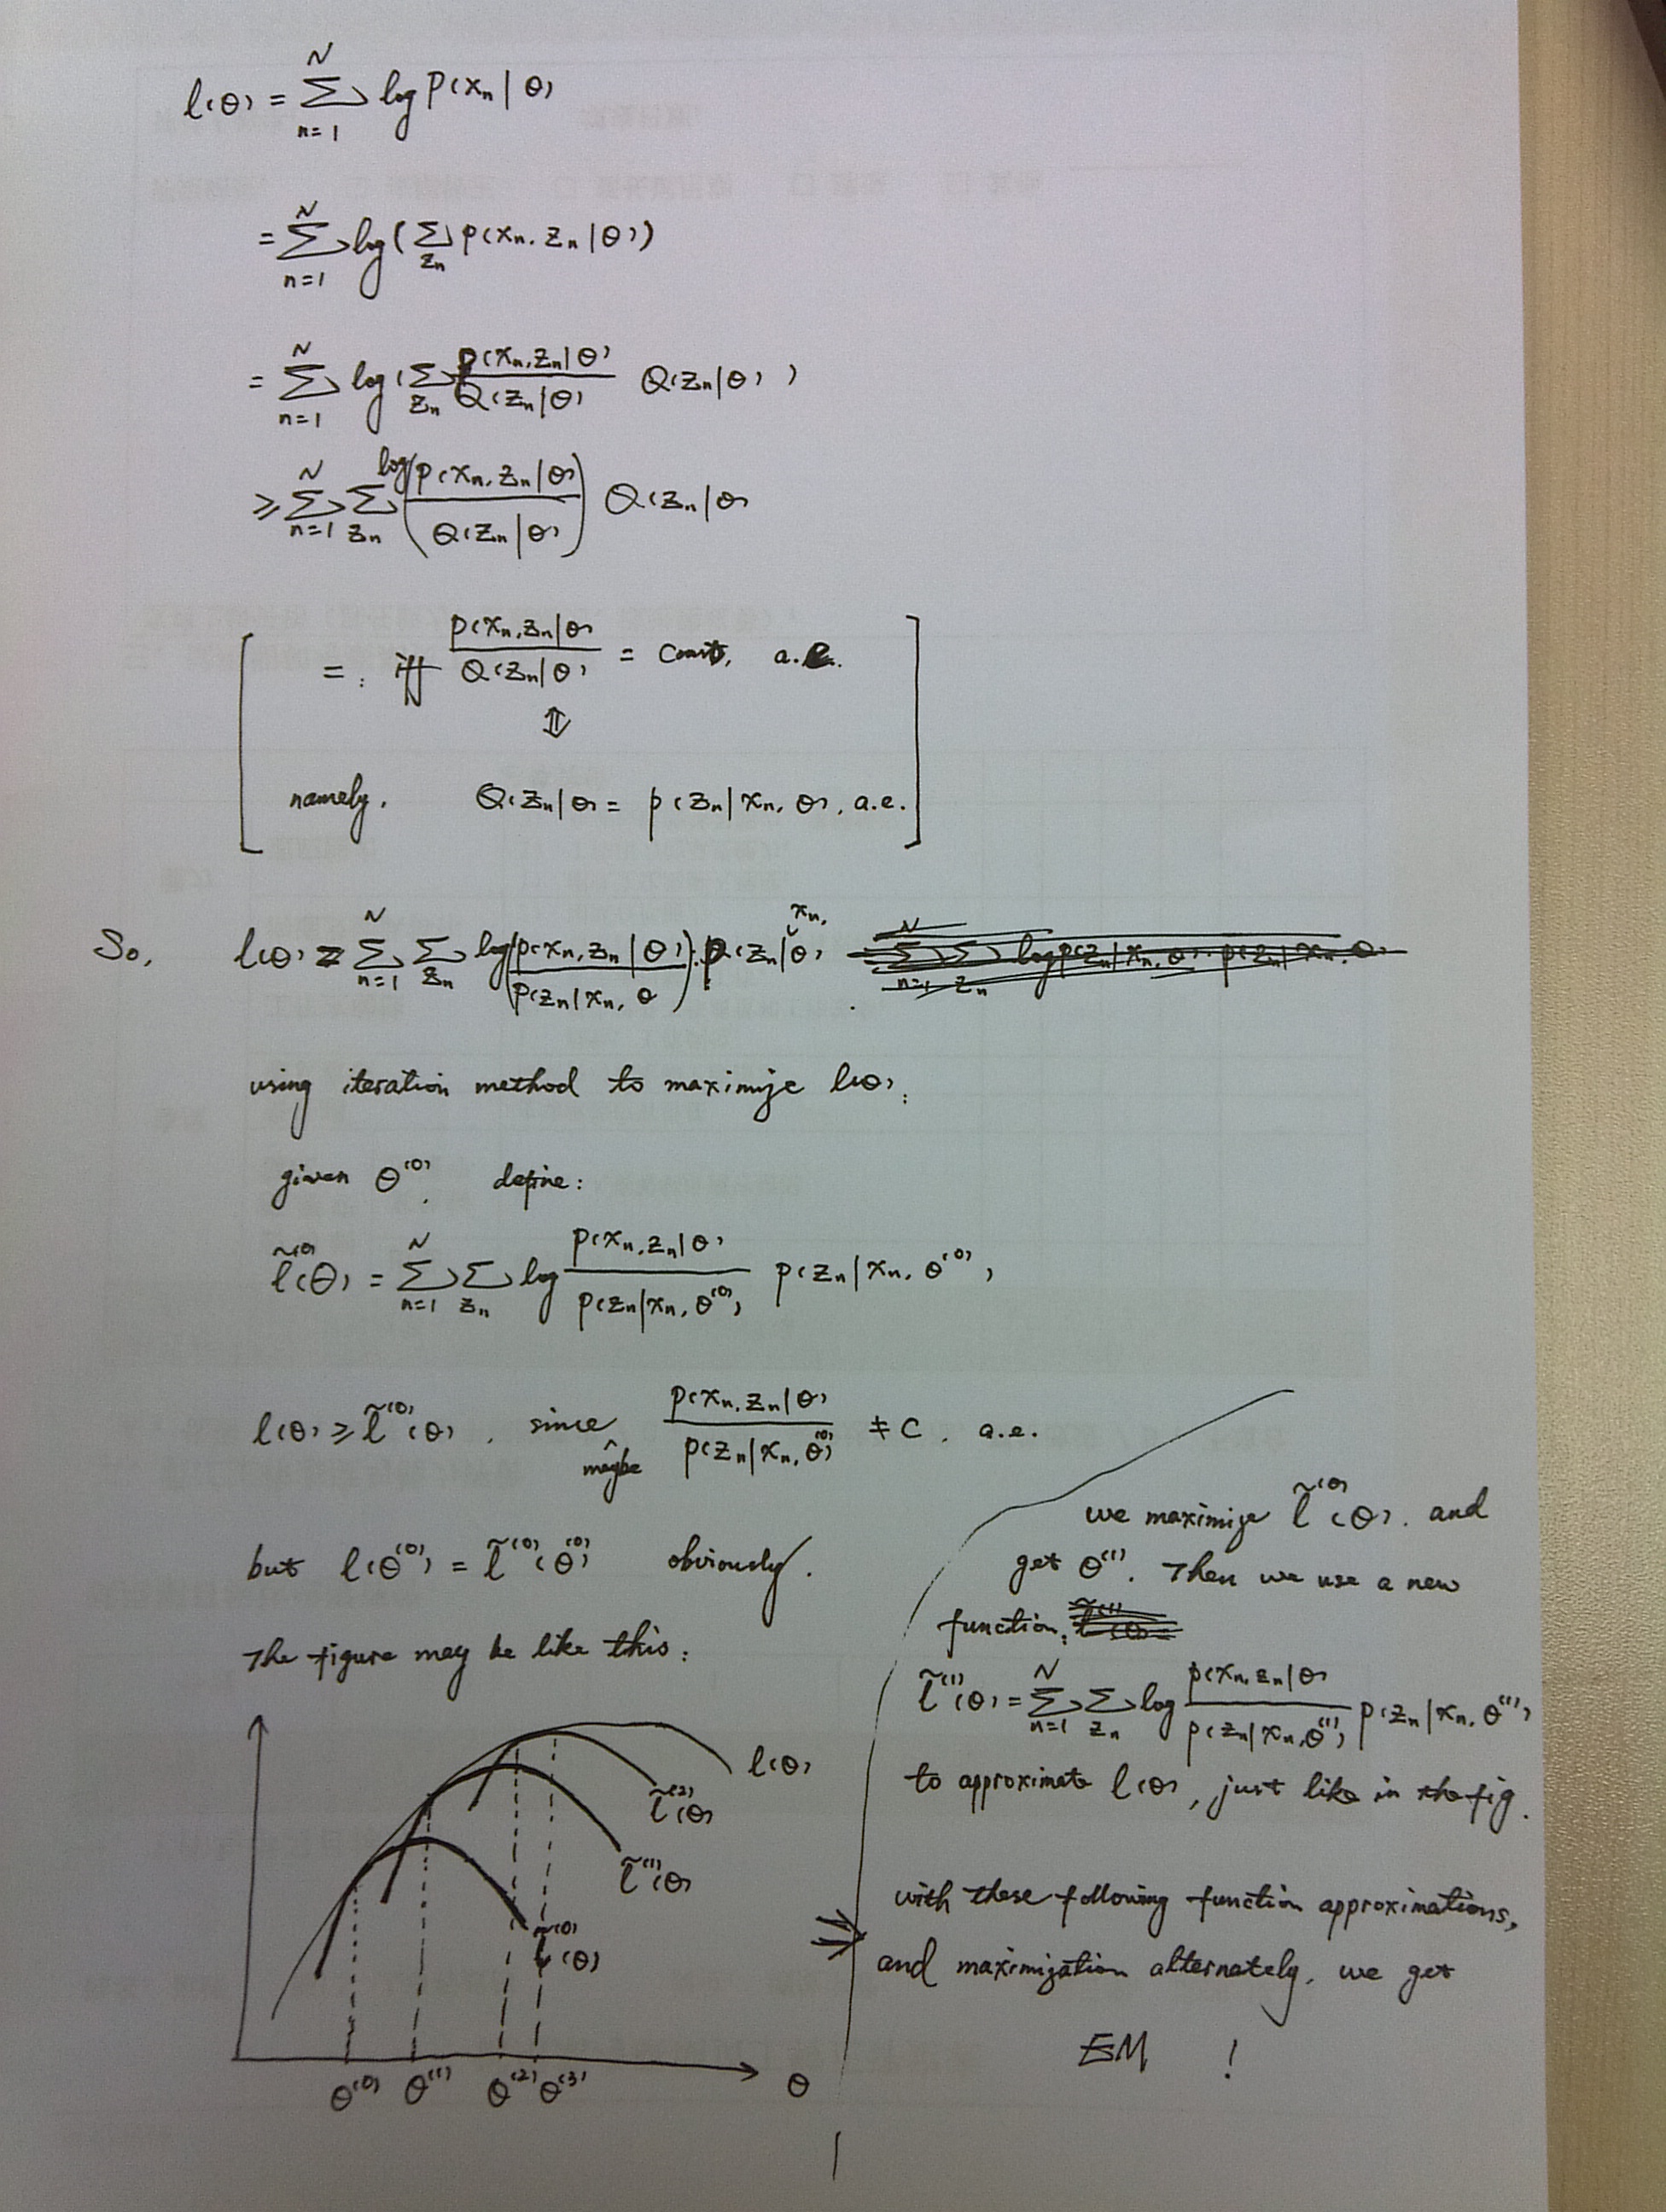 l(θ) = Σ_{n=1}^{N} log P(x_n | θ)
= Σ_{n=1}^{N} log ( Σ_{z_n} p(x_n, z_n | θ) )
= Σ_{n=1}^{N} log ( Σ_{z_n} p(x_n, z_n | θ) / Q(z_n | θ) Q(z_n | θ) )
≥ Σ_{n=1}^{N} Σ_{z_n} log ( p(x_n, z_n | θ) / Q(z_n | θ) ) Q(z_n | θ)
= : iff p(x_n, z_n | θ) / Q(z_n | θ) = const, a.e.
⇕
namely, Q(z_n | θ) = p(z_n | x_n, θ), a.e.
So, l(θ) = Σ_{n=1}^{N} Σ_{z_n} log ( p(x_n, z_n | θ) / p(z_n | x_n, θ) ) · p(z_n | x_n, θ)
using iteration method to maximize l(θ):
given θ^(0), define:
l̃^(0)(θ) = Σ_{n=1}^{N} Σ_{z_n} log p(x_n, z_n | θ) / p(z_n | x_n, θ^(0)) p(z_n | x_n, θ^(0)),
l(θ) ≥ l̃^(0)(θ), since maybe p(x_n, z_n | θ) / p(z_n | x_n, θ^(0)) ≠ C, a.e.
but l(θ^(0)) = l̃^(0)(θ^(0)) obviously.
The figure may be like this:
l(θ)
l̃^(2)(θ)
l̃^(1)(θ)
l̃^(0)(θ)
θ^(0) θ^(1) θ^(2) θ^(3) θ
we maximize l̃^(0)(θ), and
get θ^(1). Then we use a new
function:
l̃^(1)(θ) = Σ_{n=1}^{N} Σ_{z_n} log p(x_n, z_n | θ) / p(z_n | x_n, θ^(1)) p(z_n | x_n, θ^(1))
to approximate l(θ), just like in the fig.
with these following function approximations,
and maximization alternately, we get
EM !